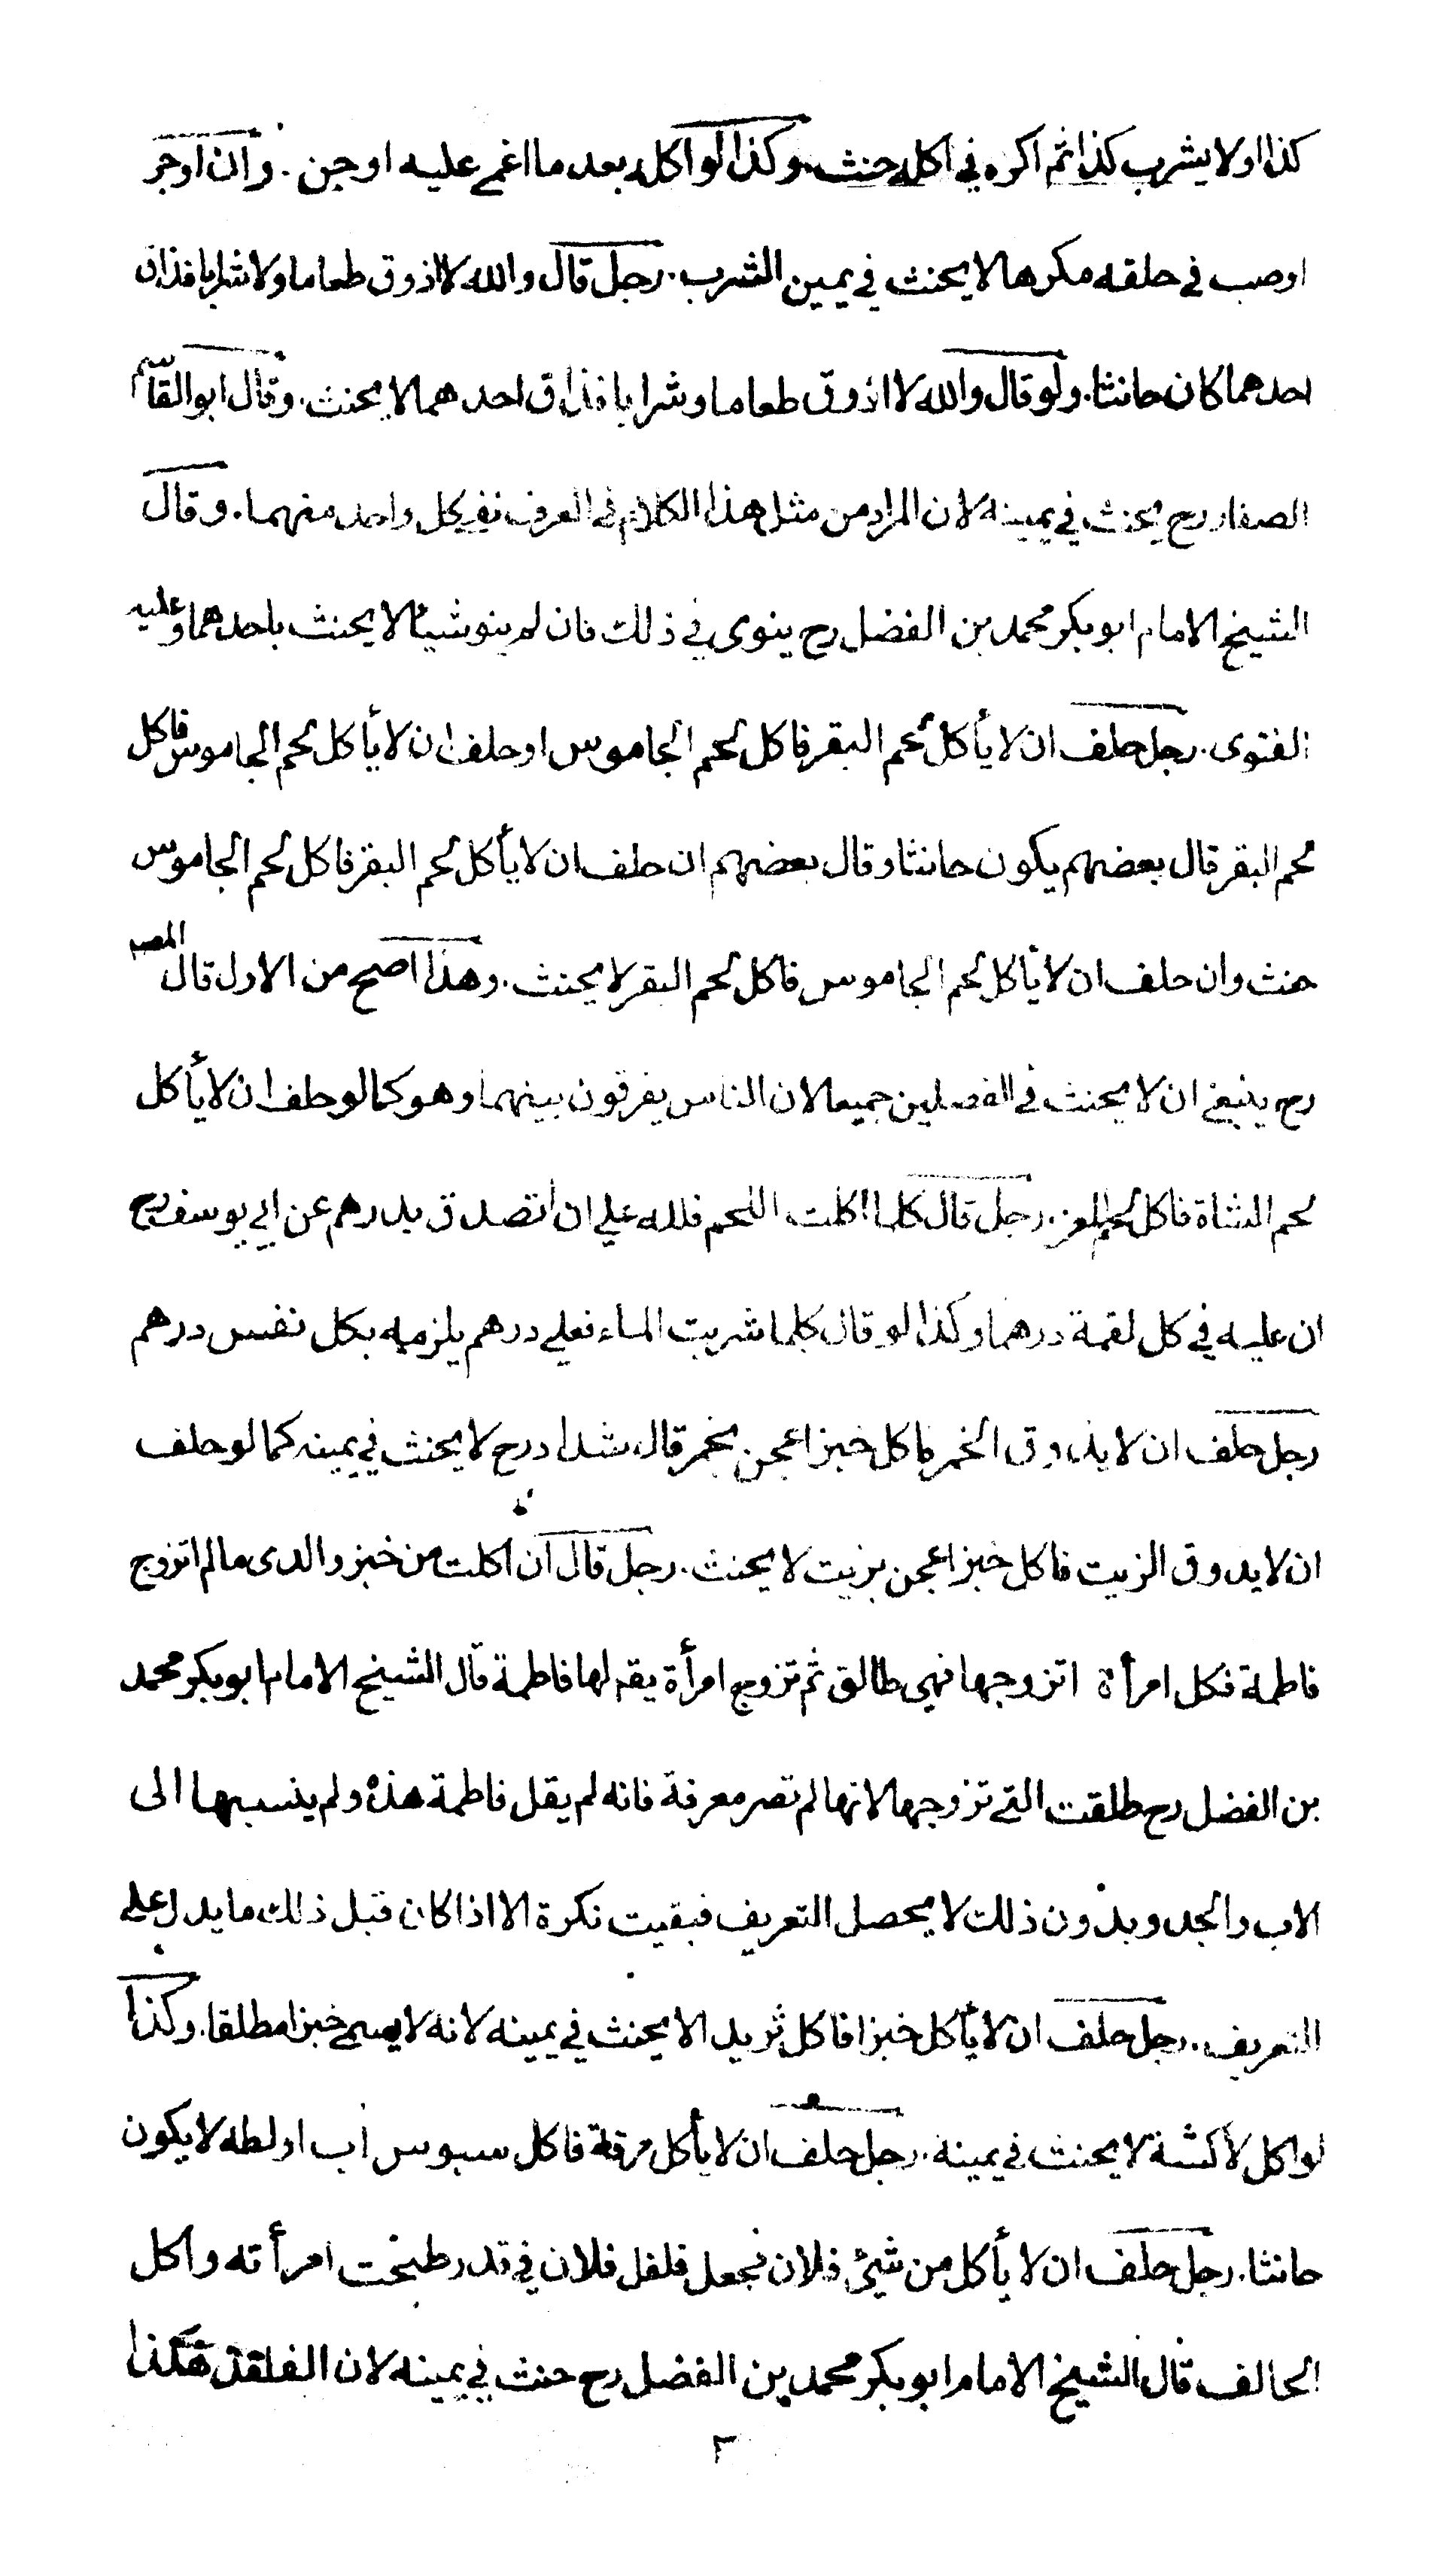 كذا او لا يشرب كذا ثم اكره في اكله حنث. وكذا لو اكله بعد ما اغمي عليه او جن. وان اوجر
او صب في حلقه مكرها لا يحنث في يمين الشرب. رجل قال والله لا اذوق طعاما ولا شرابا فذاق
احدهما كان حانثا. ولو قال والله لا اذوق طعاما وشرابا فذاق احدهما لا يحنث. وقال ابو القاسم
الصفار رح يحنث في يمينه لان المراد من مثل هذا الكلام في العرف نفي كل واحد منهما. وقال
الشيخ الامام ابو بكر محمد بن الفضل رح ينوي في ذلك فان لم ينو شيئا لا يحنث باحدهما وعليه
الفتوى. رجل حلف ان لا يأكل لحم البقر فاكل لحم الجاموس او حلف ان لا يأكل لحم الجاموس فاكل
لحم البقر قال بعضهم يكون حانثا وقال بعضهم ان حلف ان لا يأكل لحم البقر فاكل لحم الجاموس
حنث وان حلف ان لا يأكل لحم الجاموس فاكل لحم البقر لا يحنث. وهذا اصح من الاول قال المص
رح ينبغي ان لا يحنث في الفصلين جميعا لان الناس يفرقون بينهما وهو كما لو حلف ان لا يأكل
لحم الشاة فاكل لحم المعز. رجل قال كلما اكلت اللحم فلله علي ان اتصدق بدرهم عن ابي يوسف رح
ان عليه في كل لقمة درهما وكذا لو قال كلما شربت الماء فعلي درهم يلزمه بكل نفس درهم
رجل حلف ان لا يذوق الخمر فاكل خبزا عجن بخمر قال شداد رح لا يحنث في يمينه كما لو حلف
ان لا يذوق الزيت فاكل خبزا عجن بزيت لا يحنث. رجل قال ان اكلت من خبز والدى ما لم اتزوج
فاطمة فكل امرأة اتزوجها فهي طالق ثم تزوج امرأة يقم لها فاطمة قال الشيخ الامام ابو بكر محمد
بن الفضل رح طلقت التي تزوجها لانها لم تصر معرفة فانه لم يقل فاطمة هذه ولم ينسبها الى
الاب والجد وبدون ذلك لا يحصل التعريف فبقيت نكرة الا اذا كان قبل ذلك ما يدل على
التعريف. رجل حلف ان لا يأكل خبزا فاكل ثريدا لا يحنث في يمينه لانه لا يسمى خبزا مطلقا. وكذا
لو اكل لاكشة لا يحنث في يمينه. رجل حلف ان لا يأكل مرقة فاكل سبوس اب او لطه لا يكون
حانثا. رجل حلف ان لا يأكل من شيئ فلان فجعل فلفل فلان في قدر طبخت امرأته واكل
الحالف قال الشيخ الامام ابو بكر محمد بن الفضل رح حنث في يمينه لان الفلفل هكذا
٣